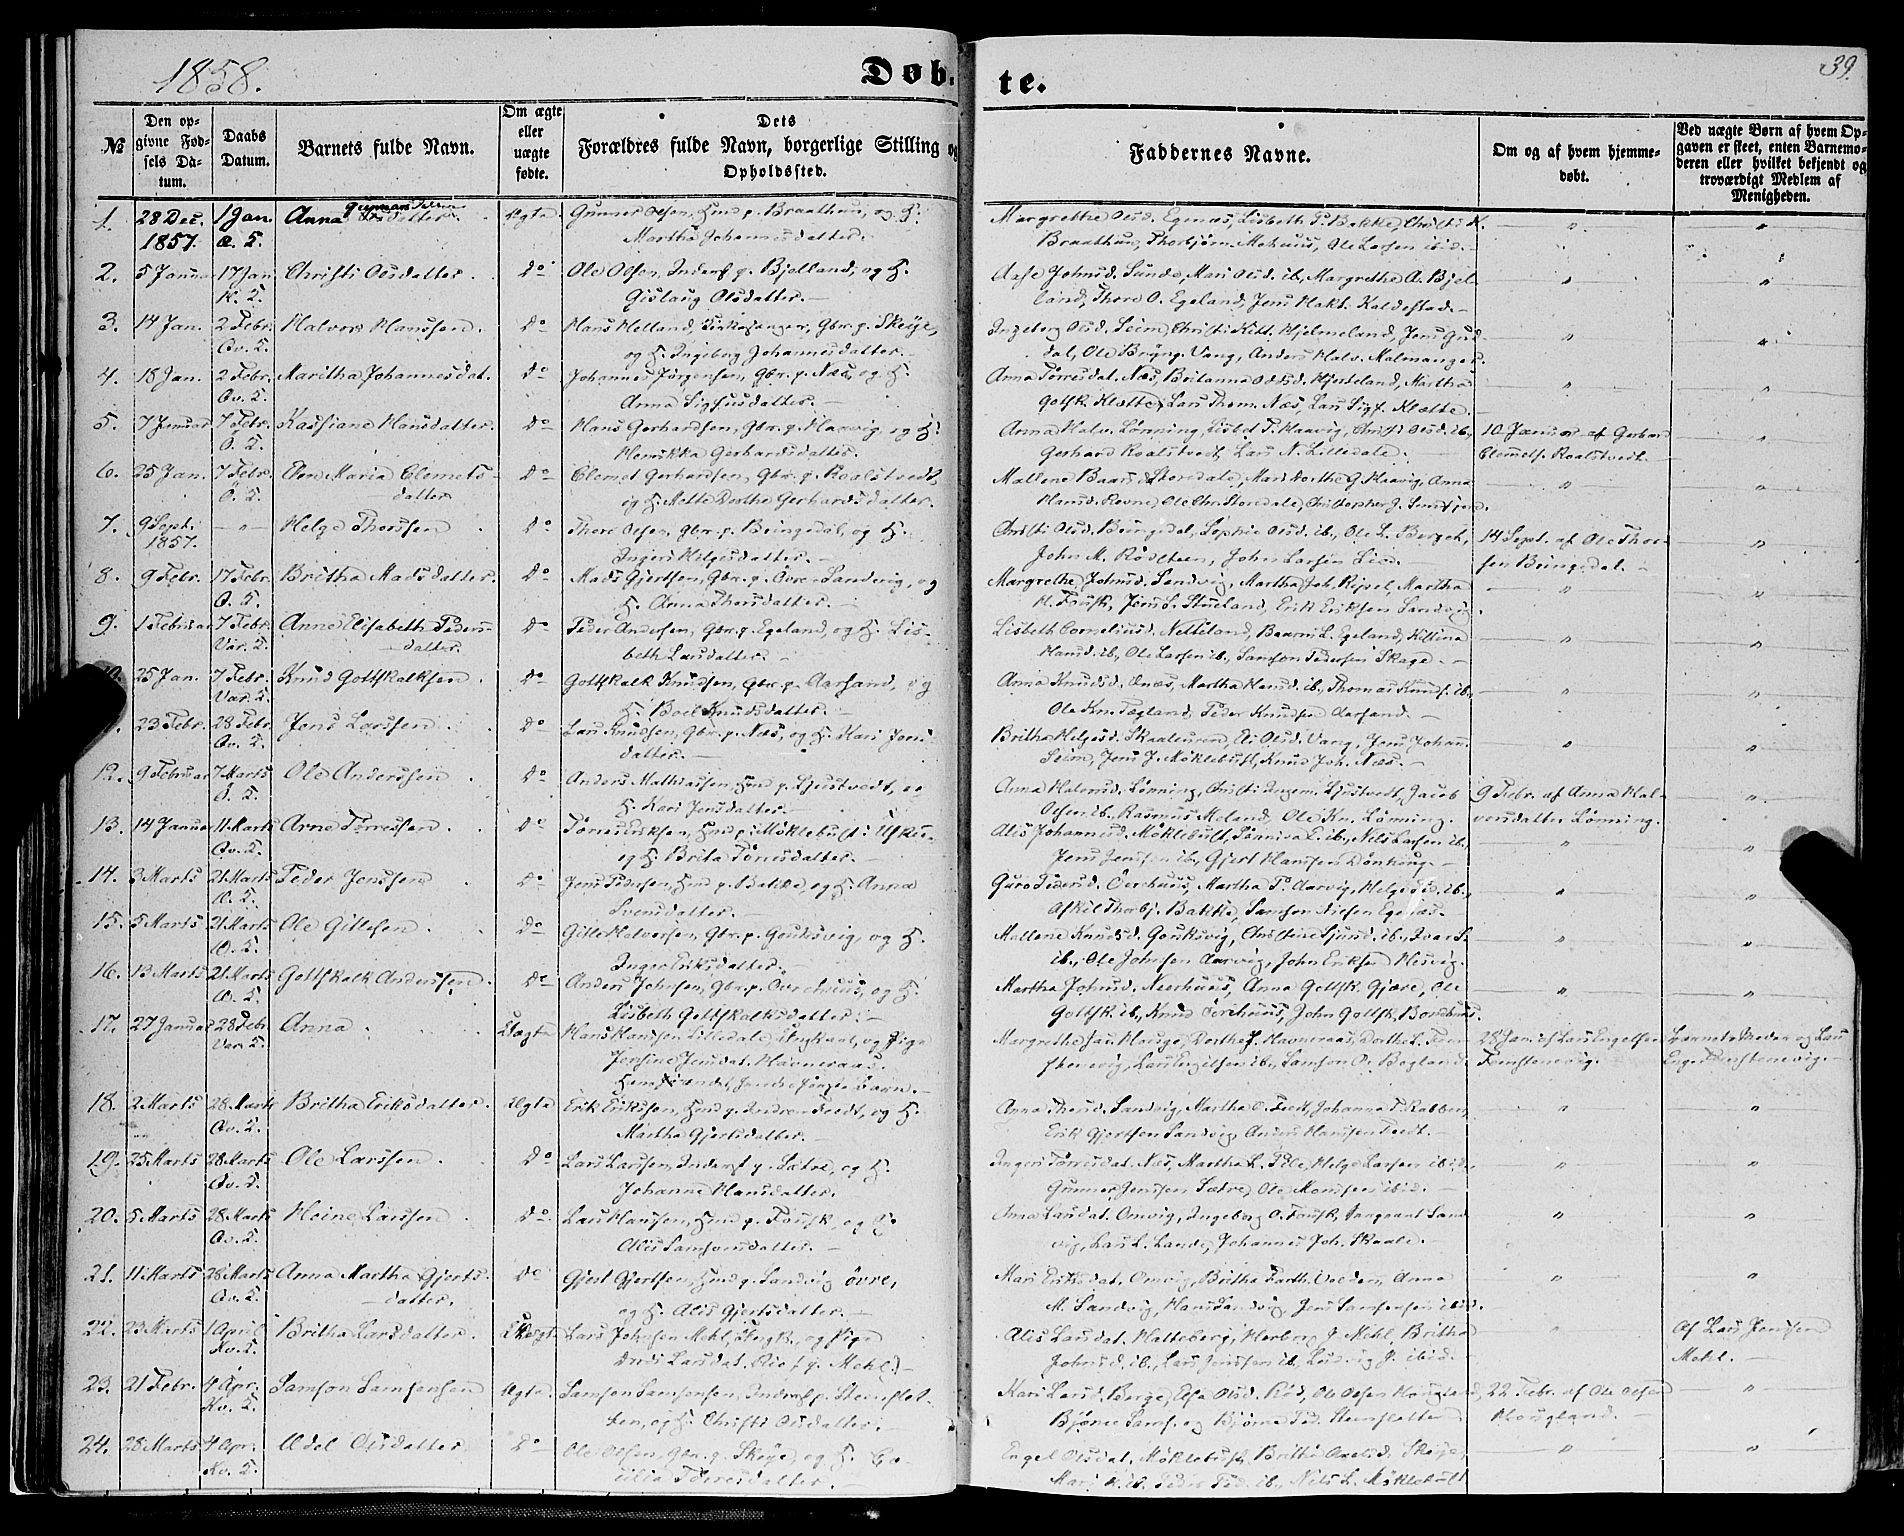 1858.
Døb-
te.
39.
№
Den op-
givne Fød-
sels Da-
tum.
Daabs
Datum.
Barnets fulde Navn.
Om ægte
eller
uægte
fødte.
Dets
Forældres fulde Navn, borgerlige Stilling og
Opholdssted.
Faddernes Navne.
Om og af hvem hjemme-
døbt.
Ved uægte Børn af hvem Op-
gaven er skeet, enten Barnemo-
deren eller hvilket bekjendt og
troværdigt Medlem af
Menigheden.
1. 28 Dec. 1 Jan Anna Gunnarsdatter Ægte Gunner Olsen, Hmd p. Braathun, og H.
1857. Æ. K. Martha Johannesdatter.
Margrethe Olsd. Egenæs, Lisbeth P. Bakke, Christi K.
Braathun, Thorbjørn Mehuus, Ole Larsen ibid.
2. 5 Januar 17 Jan Christi Olsdatter. Do Ole Olsen, Inderst p. Bjelland, og H.
K. K. Gislaug Olsdatter.
Aase Johnsd. Sunde, Mari Olsd. ib., Margrethe A. Bjel-
land, Thore O. Egeland, Jens Hakt. Kaldestad.
3. 14 Jan. 2 Febr. Halvor Hanssen. Do Hans Helland, Kirkesanger, Gbr. p. Skeie,
Ov. K. og H. Ingeborg Johannesdatter.
Ingeborg Olsd. Seim, Christi Kitt. Hjelmeland, Jens Gud-
dal, Ole Brÿng. Vang, Anders Halv. Malmanger.
4. 18 Jan. 2 Febr. Maritha Johannesdat. Do Johannes Jørgensen, Gbr. p. Næs, og H.
Ov. K. Anna Sigfusdatter.
Anna Tørresdat. Næs, Britanna Olsd. Hjorteland, Martha
Gotsk. Klætte, Lars Thom. Næs, Lars Sigf. Klætte.
5. 7 Januar 7 Febr. Kassiane Hansdatter. Do Hans Gerhardsen, Gbr. p. Haavig, og H.
O. K. Henrikka Gerhardsdatter.
Anna Halv. Lønning, Lisbet T. Haavig, Christi Olsd. ib.,
Gerhard Roalstvedt, Lars N. Lilledale.
10 Januar af Gerhard
Clemets. Roalstvedt.
6. 25 Jan. 7 Febr. Elen Maria Clemets- Do Clemet Gerhardsen, Gbr. p. Roalstvedt,
O. K. datter og H. Mette Dorthe Gerhardsdatter.
Mallene Baars. Storedale, Mari Dorthe G. Haavig, Anna
Hansd. Revne, Ole Chr. Storedale, Christopher J.
7. 9 Sept. Helge Thorssen Do Thore Olsen, Gbr. p. Bringedal, og H.
1857. Ingeri Helgesdatter.
Christi Olsd. Bringedal, Sophie Olsd. ib., Ole L. Berget,
John M. Rødsteen, John Larsen Lien.
14 Sept. af Ole Thor-
sen Bringedal.
8. 9 Febr. 17 Febr. Britha Madsdatter. Do Mads Gjertsen, Gbr. p. Øvre-Sandvig, og
O. K. H. Anna Thoresdatter.
Margrethe Johnsd. Sandvig, Martha Joh. Ripel, Martha
H. Fousk, Jens L. Stueland, Erik Eriksen Sandvig
9. 1 Februar 7 Febr. Anne Elisabeth Peders- Do Peder Andersen, Gbr. p. Egeland, og H. Lis-
Var. K. datter. beth Larsdatter.
Lisbeth Corneliusd. Netteland, Baarni L. Egeland, Killina
Hansd. ib., Ole Larsen ib., Samson Pedersen Skage.
10. 25 Jan. 7 Febr. Knud Gottskalksen. Do Gotskalk Knudsen, Gbr. p. Aarsand, og
Var. K. H. Boel Knudsdatter.
Anna Knudsd. Ænæs, Martha Hansd. ib., Thomas Knuds. ib.,
Ole Kn. Tægland, Peder Knudsen Aarsand.
23 Febr. 28 Febr. Jens Larssen Do Lars Knudsen, Gbr. p. Næs, og H. Kari Jens-
Ov. K. datter.
Britha Helgesd. Skaaleuren, Eli Olsd. Vang, Jens Johann.
Seim, Jens J. Møklebust, Knud Joh. Næs.
12. 9 Februar 7 Marts Ole Anderssen Do Anders Mathiassen, Hmd p. Ljustvedt, og
O. K. H. Kari Jensdatter.
Anna Halvorsd. Lønning, Christi Ingem. Ljustvedt, Jacob
Olsen ib., Rasmus Meland, Ole Kn. Lønning.
9 Febr. af Anna Hal-
vorsdatter Lønning.
13. 14 Januar 11 Marts Arne Tørressen. Do Tørres Eriksen, Hmd p. Møklebust i
Ov. K. og H. Brita Tørresdatter.
Alis Johannesd. Møklebust, Sønniva E. ib., Nils Larsen ib.,
Jens Jenssen ib., Gjert Hanssen Dønhaug.
14. 3 Marts 21 Marts Peder Jenssen Do Jens Pedersen, Hmd p. Bakke, og H. Anna
O. K. Svensdatter.
Guro Pedersd. Øvrehuus, Martha P. Aarvig, Helge Ped. ib.,
Askil Thorbj. Bakke, Samson Nielsen Egenæs.
15. 5 Marts 21 Marts Ole Gitlesen Do Gitle Halvorsen, Gbr. p. Gouksvig, og H.
O. K. Inger Eriksdatter.
Mallene Knudsd. Gouksvig, Christine Sjursd. ib., Ivar S.
ib., Ole Johnsen Aarvig, John Eriksen Hesvig.
16. 13 Marts 21 Marts Gottskalk Anderssen Do Anders Johnsen, Gbr. p. Øvrehuus, og H.
O. K. Lisbeth Gottskalksdatter.
Martha Johnsd. Neerhuus, Anna Gottsk. Gjære, Ole
Gottsk. ib., Knud Øvrehuus, John Gottsk. Bondhuus.
17. 27 Januar 28 Febr. Anna Uægte Hans Hanssen Lilledale, Ungkarl, og Pige
Var. K. Josine Jensdat. Havneraas.
Hans andet, hendes første Barn.
Margrethe Jans. Hauge, Dorthe J. Havneraas, Dorthe L. Teen-
stenevig, Lars Engelsen ib., Samson O. Bogland.
28 Jan. af Lars Engelsen
Teenstenevig.
Barnets Moder og Lars
Eng. Teenstenevig.
18. 2 Marts 28 Marts Britha Eriksdatter. Ægte Erik Erikssen, Hmd p. Indre Tvedt, og H.
Ov. K. Martha Gjertsdatter.
Anna Thoresd. Sandvig, Martha O. Tvedt, Johanna T. Rabben,
Erik Gjertsen Sandvig, Anders Hanssen Tvedt.
19. 25 Marts 28 Marts Ole Larssen Do Lars Larssen, Inderst p. Sætre, og H.
Ov. K. Johanne Hansdatter.
Ingeri Tørresdat. Næs, Martha L. Hole, Helge Larsen ibid.,
Gunner Jenssen Sætre, Ole Monssen ibid.
20. 5 Marts 28 Marts Heine Larssen Do Lars Hanssen, Hmd p. Fousk, og H.
Ov. K. Alis Samsonsdatter.
Anna Larsdat. Omvig, Ingeborg O. Fousk, Sand-
vig, Lars L. Lande, Johannes Joh. Skaale.
21. 11 Marts 28 Marts Anna Martha Gjerts- Do Gjert Gjertsen, Hmd p. Sandvig øvre,
Ov. K. datter. og H. Alis Gjertsdatter.
Mari Eriksdat. Omvig, Britha Barth. Valder, Anna
M. Sandvig, Hans Sandvig, Jens Samsonsen ibid.
22. 23 Marts 1 April Britha Larsdatter. Uægte Lars Johnsen Mehl, Ungk., og Pige
Kv. K. Andri Larsdat. p. Mehl.
Alis Larsdat. Hatteberg, Herborg J. Mehl, Britha
Johnsd. ib., Lars Jenssen ib., Ludvig J. ibid.
Af Lars Jenssen
Mehl.
23. 21 Febr. 4 Apr. Samson Samsonsen Ægte Samson Samsonsen, Inderst p. Steenslet-
Kv. K. ten, og H. Christi Olsdatter.
Kari Larsd. Berge, Elsa Olsd. Rød, Ole Olsen Hougland,
Bjørne Sams. og Bjørne Ped. Steensletten
22 Febr. af Ole Olsen
Hougland.
24. 28 Marts 4 Apr. Adel Olsdatter Do Ole Olsen, Gbr. p. Skeie, og H. Ce-
Kv. K. cilia Pedersdatter.
Engel Olsdat. Møklebust, Britha Axelsd. Skeie,
Mari K. ib., Peder Ped. ib., Nils L. Møklebust